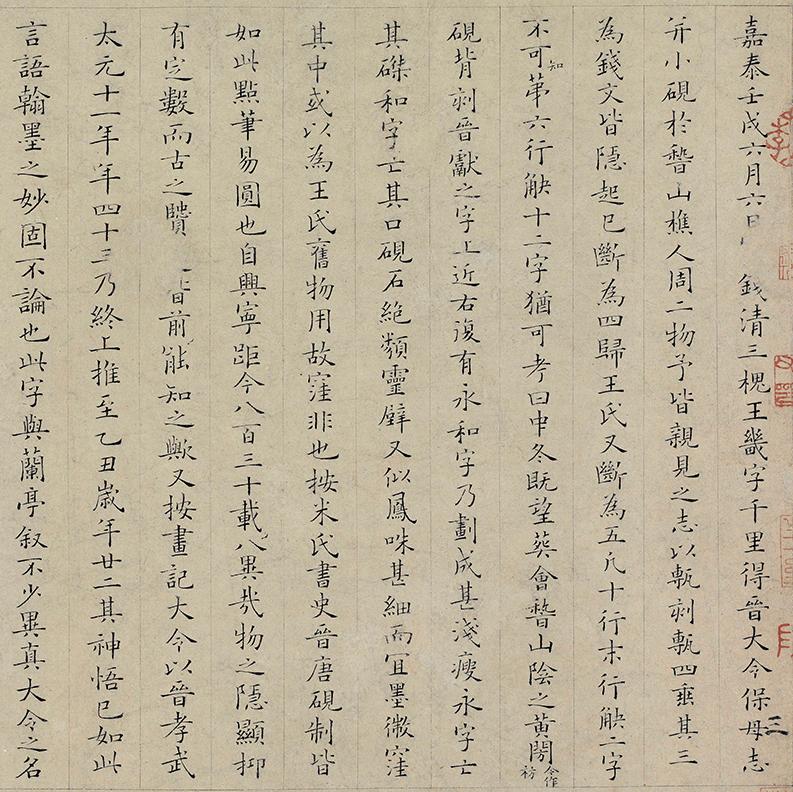 嘉泰壬戌六月六日錢清三槐王畿字千里得晉大令保母志
并小硯於嵆山樵人周二物予皆親見之志以甎刻甎四垂其三
為錢文皆隱起已斷為四歸王氏又斷為五凡十行末行缺二字
不可知苐六行缺十二字猶可考曰中冬既望葬會嵆山陰之黄閍今作祊
硯背刻晉獻之字上近右復有永和字乃劃成甚淺瘦永字亡
其磔和字亡其口硯石絶類靈壁又似鳳咮甚細而宜墨微窪
其中或以為王氏舊物用故窪非也按米氏書史晉唐硯制皆
如此點筆易圓也自興寧距今八百三十載八異哉物之隱顯抑
有定數而古之賢者前能知之歟又按畫記大令以晉孝武
太元十一年年四十三乃終上推至乙丑歲年廿二其神悟已如此
言語翰墨之妙固不論也此字與蘭亭叙不少異真大令之名
三